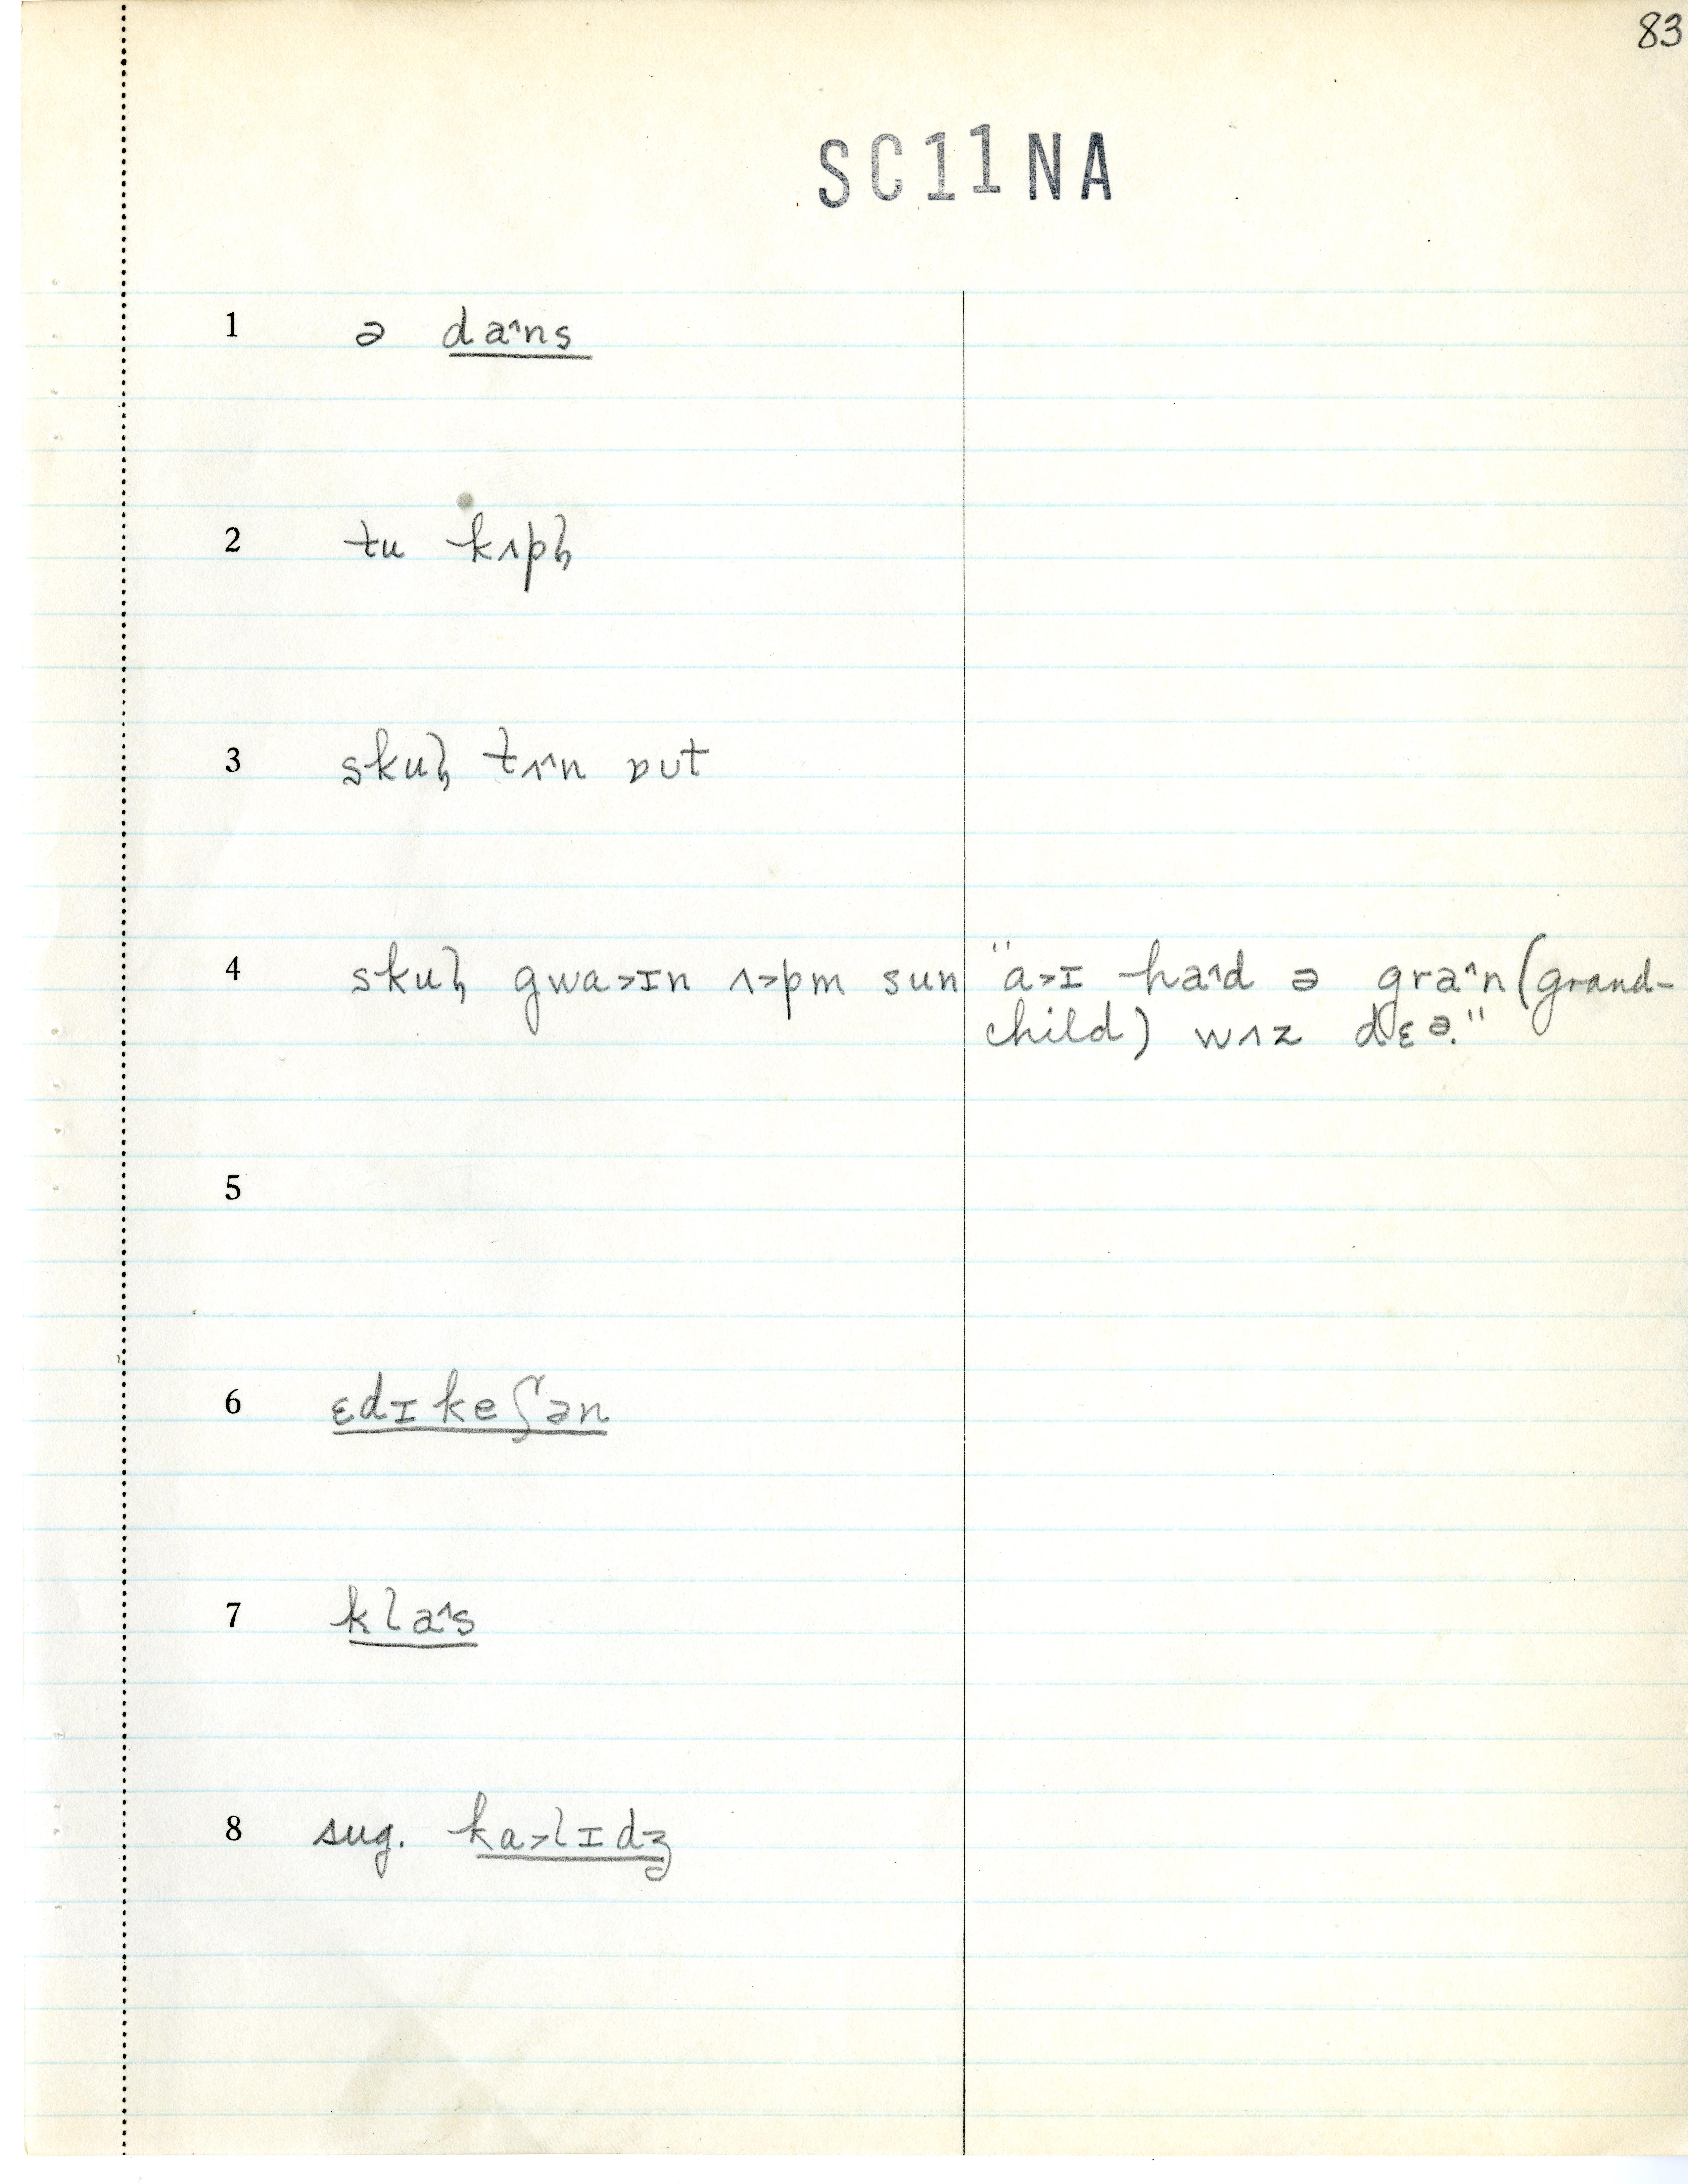 83
SC11NA
1 ə da^ns
2 tu kʌpl̩
3 skul̩ tʌ^n ɒut
4 skul̩ gwa>ɪn ʌ>pm sun "a>ɪ ha^d ə gra^n (grand-
child) wʌz dɛə."
5
6 ɛdɪkeʃən
7 kla^s
8 sug. ka>lɪdʒ